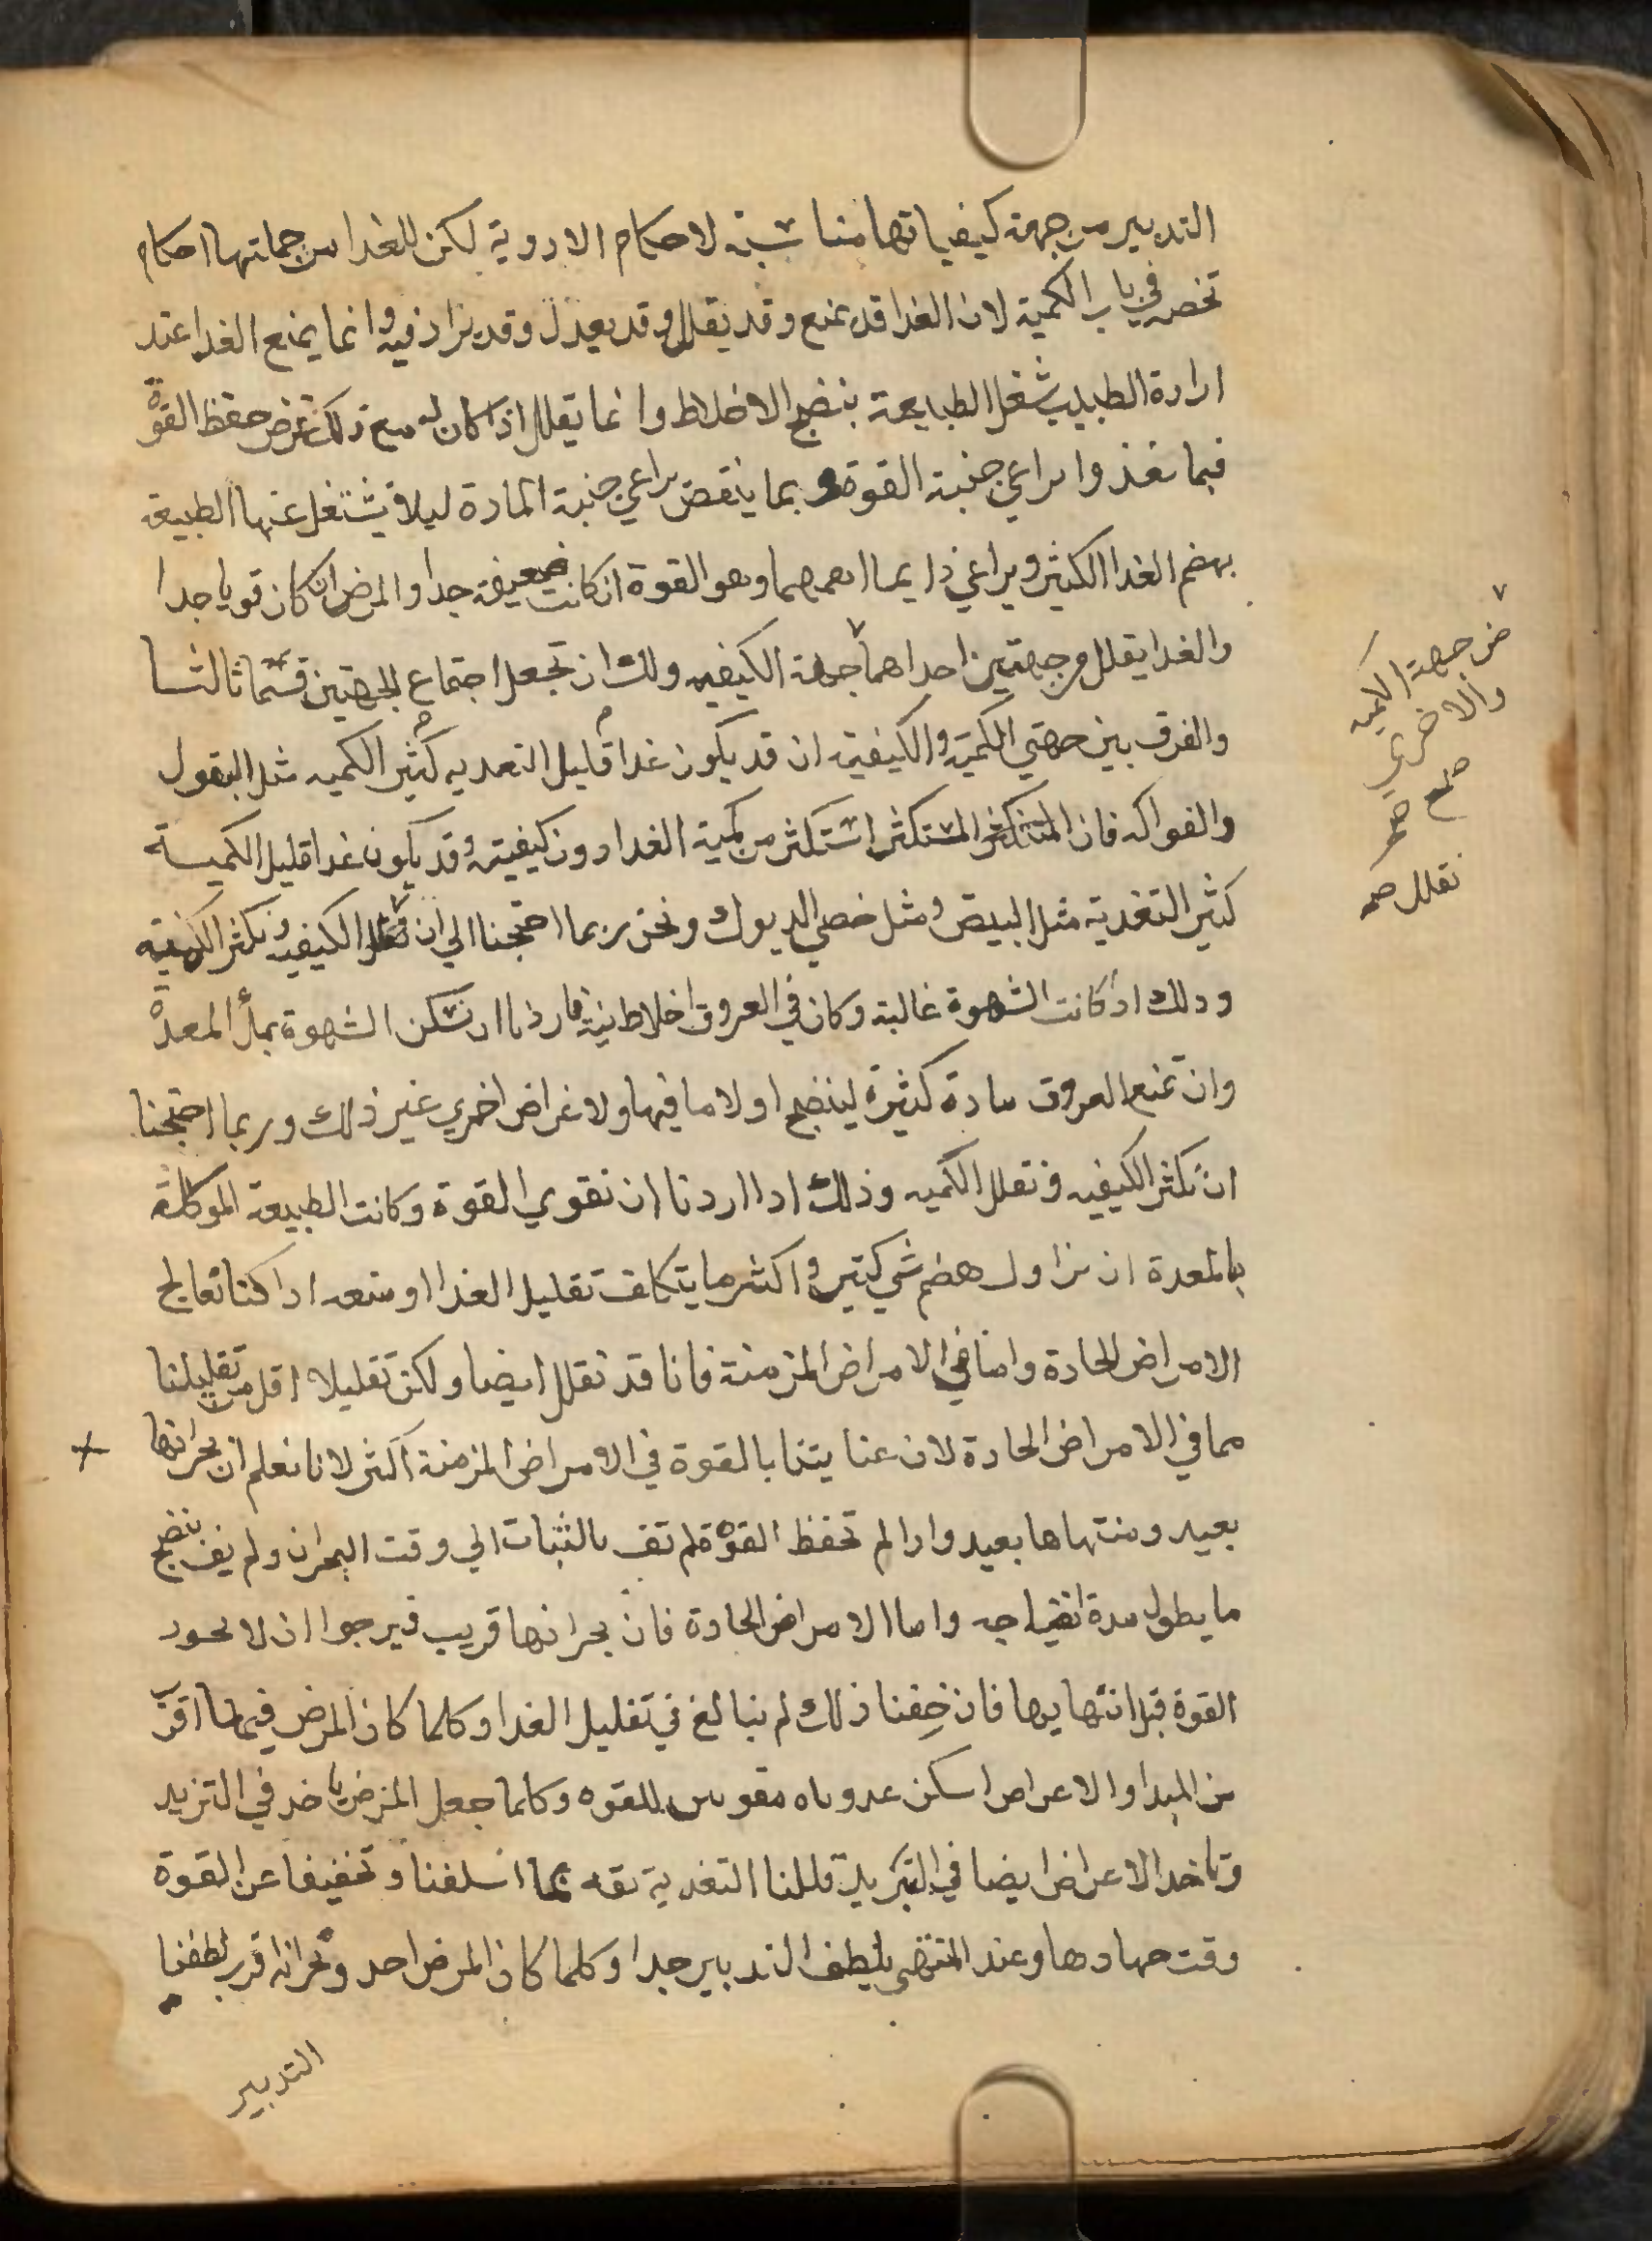 التدبير من جهة كيفياتها مناسبة لاحكام الادوية لكن للغدا من جملتها احكام
تخصه في باب الكمية لان الغدا قد يمنع وقد يقلل وقد يعدل وقد يزاد فيه وانما يمنع الغدا عند
ارادة الطبيب شغل الطبيعة بنضج الاخلاط وانما يقلل اذا كان له مع ذلك غرض حفظ القوة
فبما يغذوا يراعي جنبة القوة وبما ينقص يراعي جنبة المادة ليلا تشتغل عنها الطبيعة
بهضم الغدا الكثير ويراعي دايما اهمهما وهو القوة ان كانت ضعيفة جدا والمرض ان كان قويا جدا
والغدا يقلل من جهتين احداهما جهة الكيفيه ولك ان تجعل اجتماع الجهتين قسما ثالثا
والفرق بين جهتي الكمية والكيفية ان قد يكون غدا قليل التغديه كثير الكميه مثل البقول
والفواكه فان المستكثر استكثر من كمية الغدا دون كيفيته وقد يكون غدا قليل الكمية
كثير التغدية مثل البيض ومثل خصي الديوك ونحن ربما احتجنا الي ان نقلل الكيفيه ونكثر الكميه
ودلك اذ كانت الشهوة غالبة وكان في العروق اخلاط نية فاردنا ان نسكن الشهوة بملأ المعدة
وان نمنع العروق مادة كثيرة لينضج اولا ما فيها ولاغراض اخري غير ذلك وربما احتجنا
ان نكثر الكيفيه ونقلل الكميه وذلك ادا اردنا ان نقوي القوة وكانت الطبيعة الموكلة
بالمعدة ان تزاول هضم شي كتير واكثر ما يتكلف تقليل الغدا او منعه ادا كنا نعالج
الامراض الحادة واما في الامراض المزمنة فانا قد نقلل ايضا ولكن تقليلا اقل من تقليلنا
مما في الامراض الحادة لان عنايتنا بالقوة في الامراض المزمنة اكثر لانا نعلم ان بحرانها
بعيد ومنتهاها بعيد وادا لم تحفظ القوة لم تف بالثبات الي وقت البحران ولم يف بنضج
ما يطول مدة انضاجه واما الامراض الحادة فان بحرانها قريب فيرجوا ان لا يخور
القوة قبل انتهايها فان خفنا ذلك لم نبالغ في تقليل الغدا وكلما كان المرض فيها اقرب
من المبدا والاعراض اسكن غدوناه مقوين للقوه وكلما جعل المرض ياخد في التزيد
وتاخد الاعراض ايضا في التزيد قللنا التغدية ثقه بما اسلفنا وتخفيفا عن القوة
وقت جهادها وعند المنتهي يلطف التدبير جدا وكلما كان المرض احد وبحرانه اقرب لطفنا
التدبير
من جهة الكميه
والاخري
صح
نقلل صح